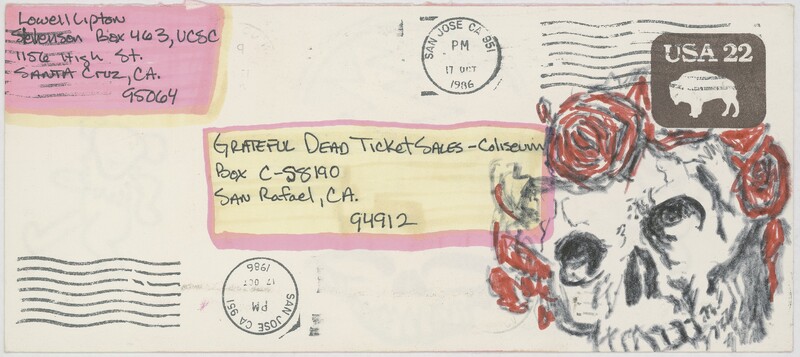 Lowell Lipton
Stevenson Box 463, UCSC
1156 High St.
SANTA CRUZ, CA.
95064
SAN JOSE CA 951
PM
17 OCT
1986
USA 22
GRATEFUL DEAD TICKET SALES - Coliseum
Box C-S8190
SAN Rafael, CA.
94912
SAN JOSE CA 951
PM
17 OCT
1986